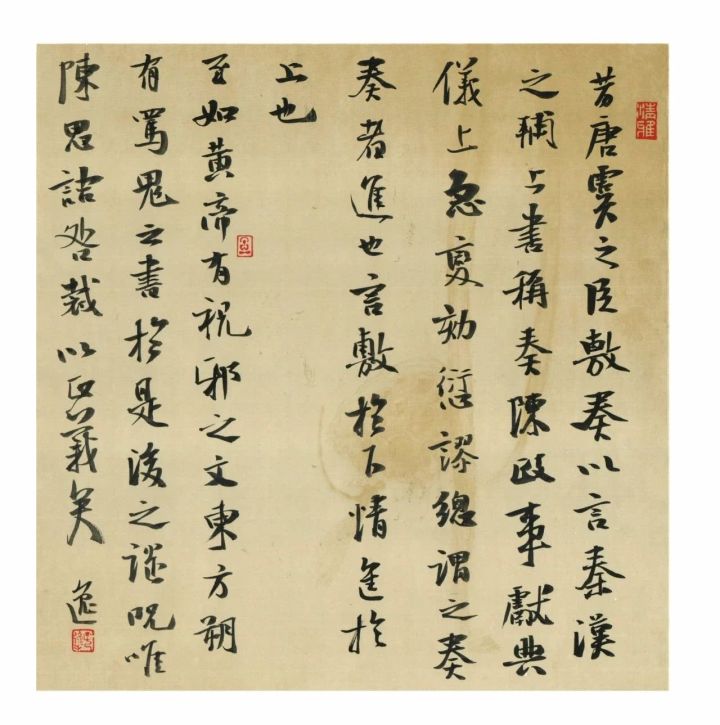 清雅
昔唐虞之臣敷奏以言秦漢
之輔上書稱奏陳政事獻典
儀上急變劾愆謬總謂之奏
奏者進也言敷於下情進於
上也
至如黃帝有祝邪之文東方朔
有罵鬼之書於是後之譴呪唯
陳思詰咎裁以正義矣
逸